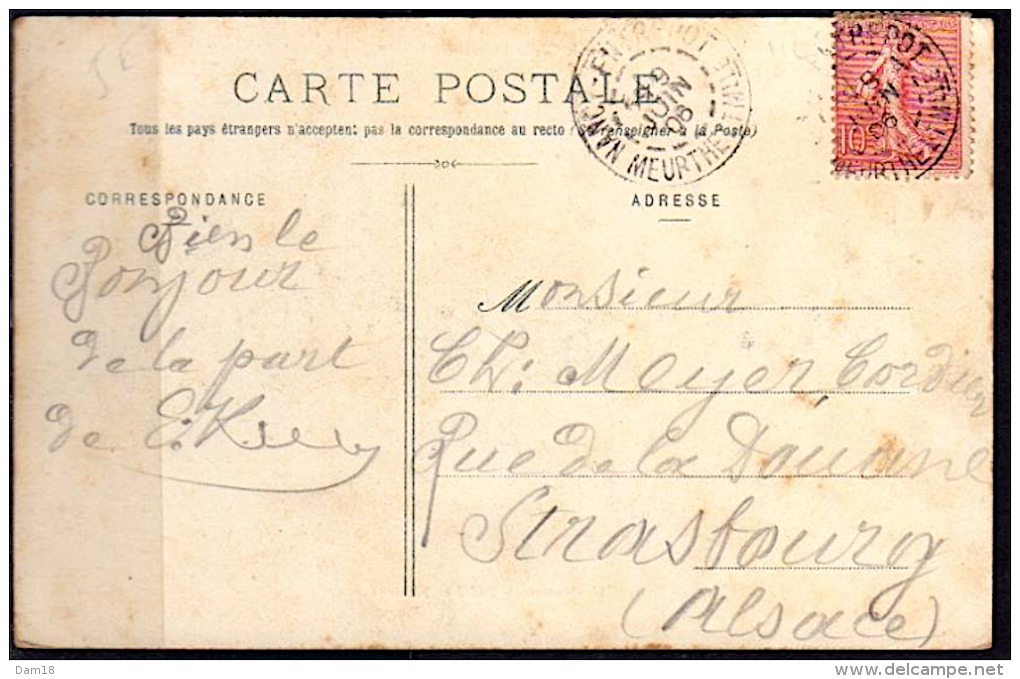 CARTE POSTALE
Tous les pays étrangers n'acceptent pas la correspondance au recto (Se renseigner à la Poste)
CORRESPONDANCE
ADRESSE
Bien le
Bonjour
de la part
de E.
Monsieur
Ch: Meyer, Cordier
Rue de la Douane
Strasbourg
(Alsace)
NANCY-ENTREPOT
MEURTHE
JUIN
06
10
Dam18
www.delcampe.net